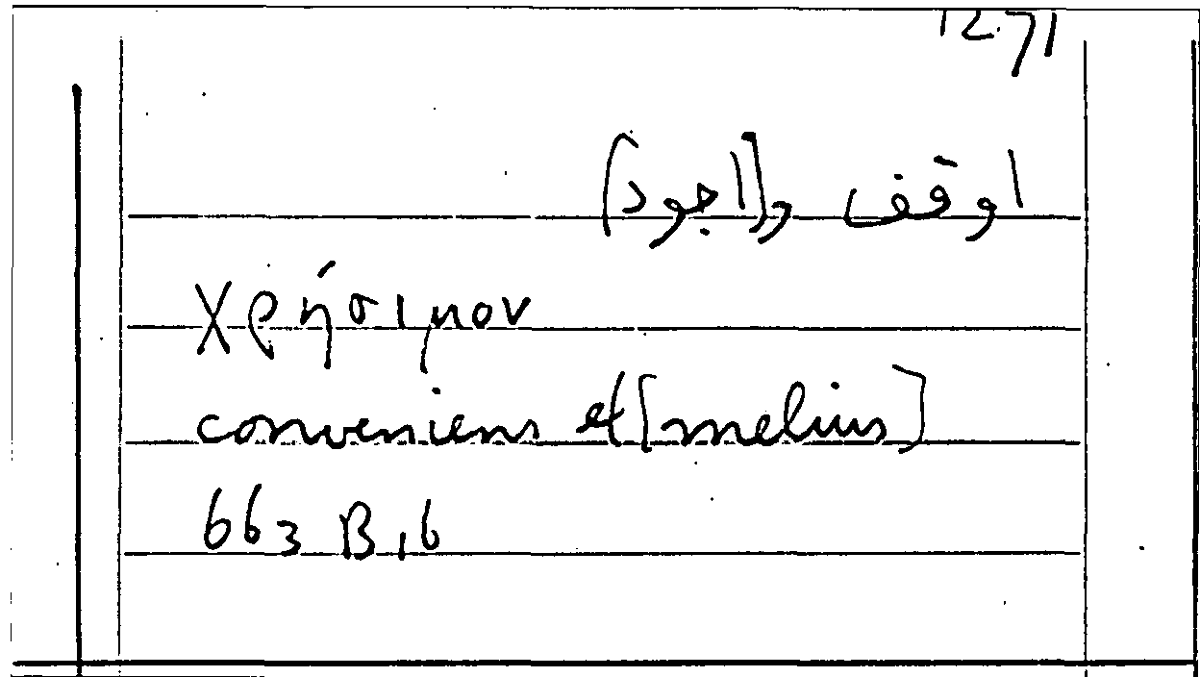 12.71
اوفق و[اجود]
χρήσιμον
conveniens et [melius]
663 B, 6